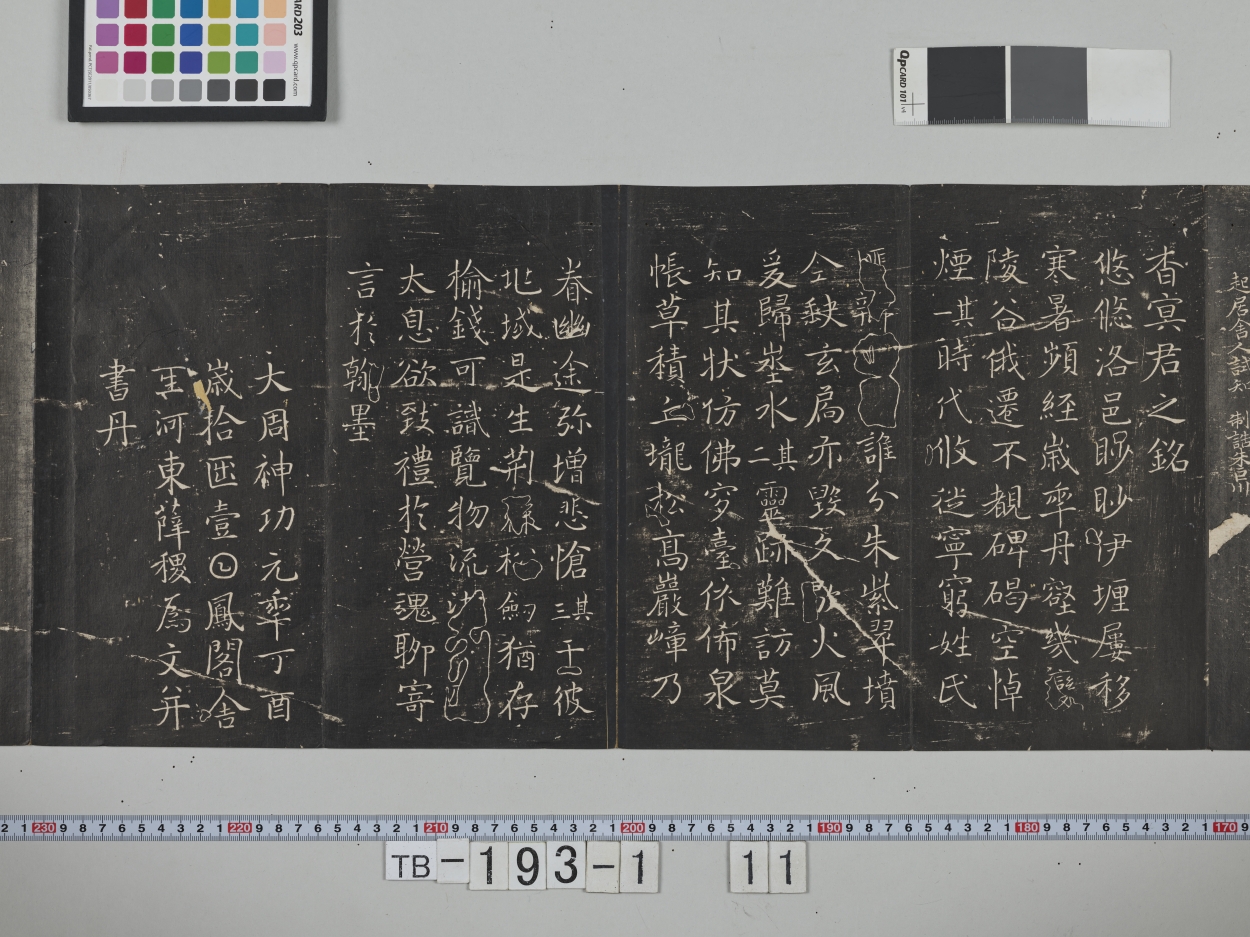 起居舍人試知 制誥朱昌
杳冥君之銘
悠悠洛邑眇眇伊壥屢移
寒暑頻經歲年丹壑幾變
陵谷俄遷不覩碑碣空悼
煙其一時代攸徙寧窮姓氏
誰分朱紫翠墳
全缺玄扃亦毀久
火風
爰歸塋水其二靈跡難訪莫
知其狀仿佛穸臺依俙泉
帳草積丘壠松高巖嶂乃
眷幽途弥增悲愴其三于彼
兆域是生荊
松劒猶存
榆錢可識覽物流
大息欲致禮於營魂聊寄
言於翰墨
大周神功元年丁酉
歲拾匝壹鳳閣舍
河東薛稷為文并
書丹
QPCARD 101 v4
CARD 203 www.qpcard.com
2 1 230 9 8 7 6 5 4 3 2 1 220 9 8 7 6 5 4 3 2 1 210 9 8 7 6 5 4 3 2 1 200 9 8 7 6 5 4 3 2 1 190 9 8 7 6 5 4 3 2 1 180 9 8 7 6 5 4 3 2 1 170 9
TB-193-1 11